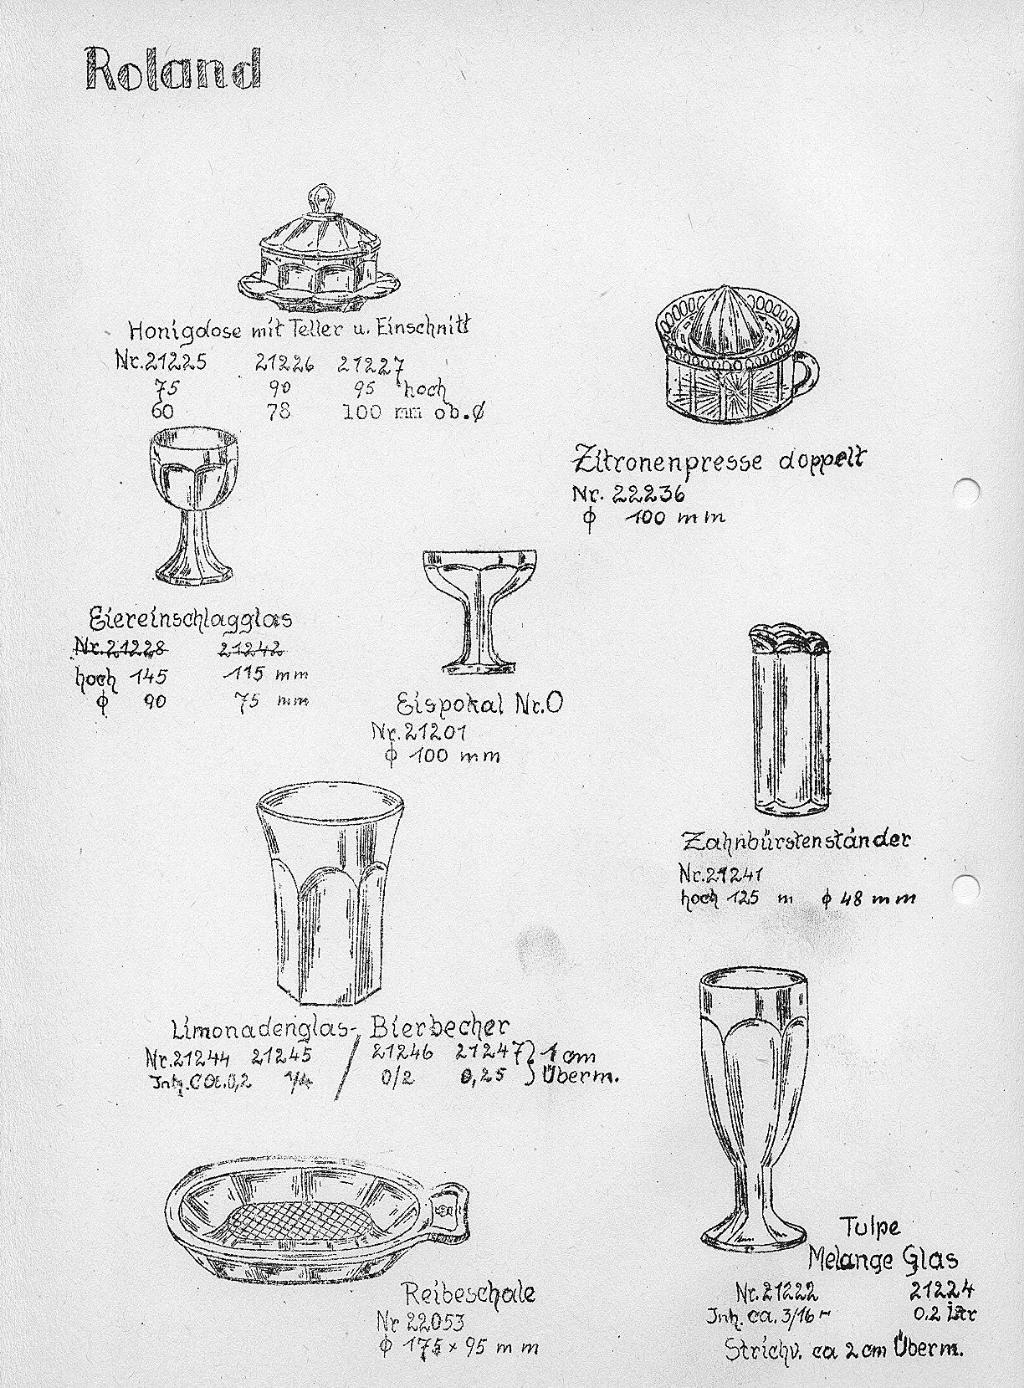 Roland
Honigdose mit Teller u. Einschnitt
Nr. 21225 21226 21227
75 90 95 hoch
60 78 100 mm ob. ø
Zitronenpresse doppelt
Nr. 22236
ϕ 100 mm
Eiereinschlagglas
Nr. 21228 21242
hoch 145 115 mm
ϕ 90 75 mm
Eispokal Nr. 0
Nr. 21201
ϕ 100 mm
Zahnbürstenständer
Nr. 21241
hoch 125 m ϕ 48 mm
Limonadenglas-, Bierbecher
Nr. 21244 21245 / 21246 21247 } 1 cm
Inh. ca. 0,2 1/4 0/2 0,25 } Überm.
Reibeschale
Nr 22053
ϕ 175 x 95 mm
Tulpe
Melange Glas
Nr. 21222 21224
Inh. ca. 3/16 - 0.2 Ltr
Strichv. ca 2 cm Überm.